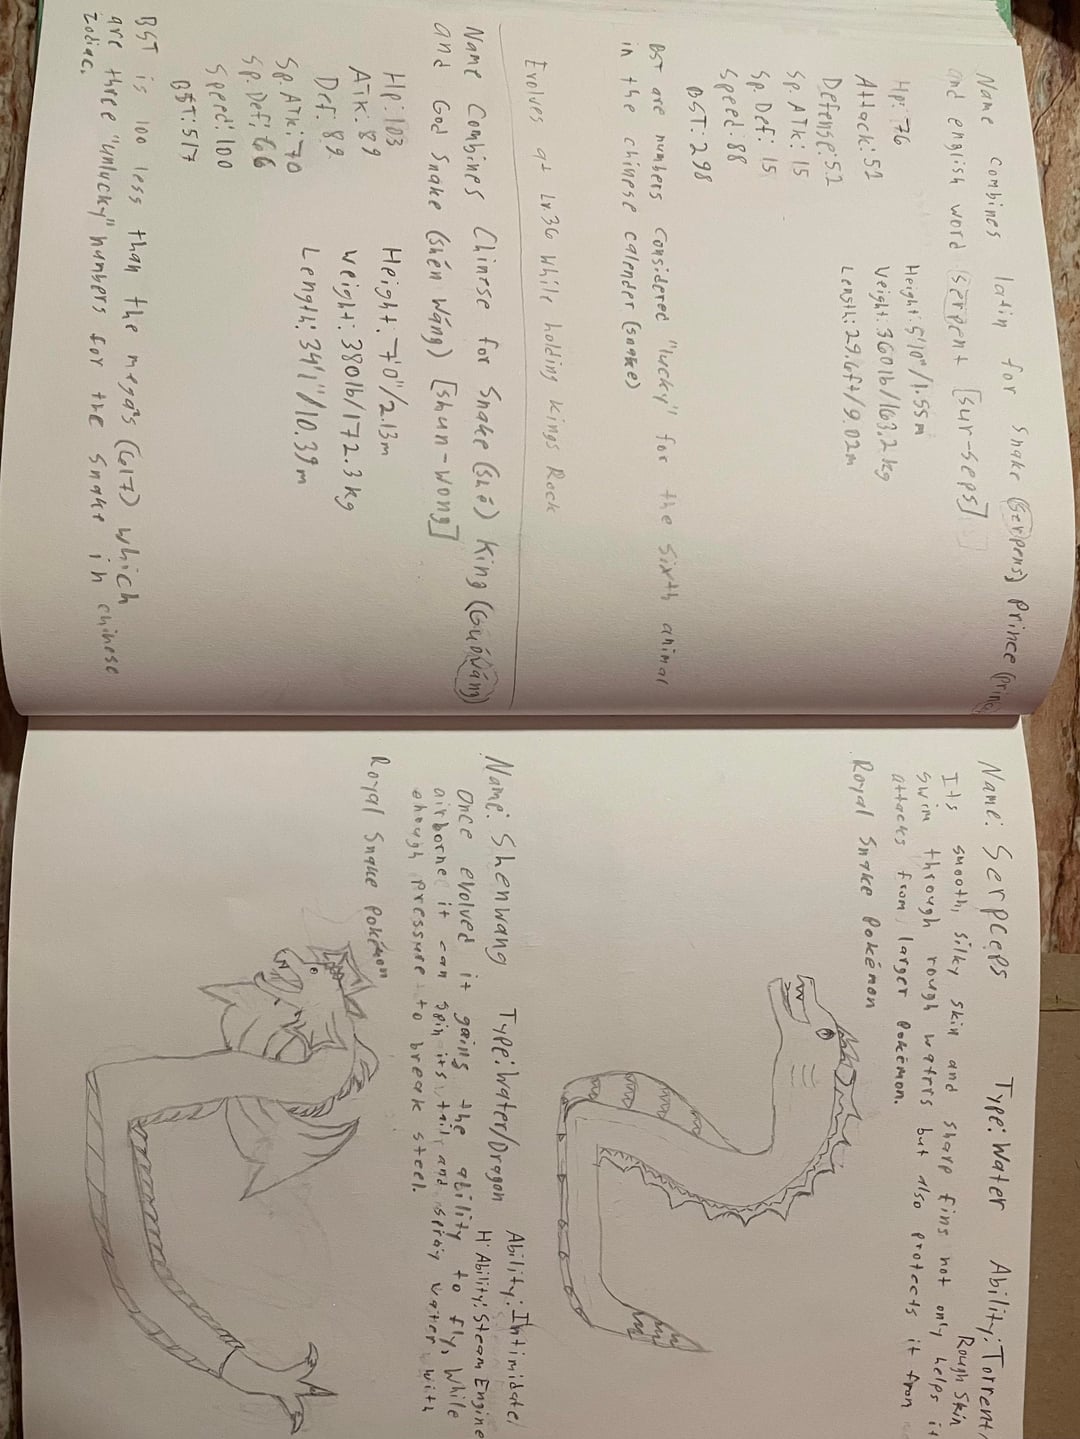 Name combines latin for snake (serpens) Prince (princ
and english word serpent [sur-seps]
Hp: 76
Attack: 52
Defense: 52
Sp. Atk: 15
Sp. Def: 15
Speed: 88
BST: 298
Height: 5'10"/1.55m
Weight: 360lb/163.2kg
Length: 29.6ft/9.02m
BST are numbers considered "lucky" for the sixth animal
in the chinese calender (snake)
Evolves at Lv36 while holding Kings Rock
Name Combines Chinese for Snake (Shé) King (Guówáng)
and God Snake (shén Wáng) [Shun-wong]
Hp: 103
Atk: 89
Def: 89
Sp. Atk: 70
Sp. Def: 66
Speed: 100
BST: 517
Height: 7'0"/2.13m
Weight: 380lb/172.3kg
Length: 34'1"/10.39m
BST is 100 less than the mega's (617) which
are three "unlucky" numbers for the snake in chinese
zodiac.
Name: Serpceps Type: Water Ability: Torrent/
Rough Skin
Its smooth, silky skin and sharp fins not only helps it
swim through rough waters but also protects it from
attacks from larger Pokémon.
Royal Snake Pokémon
Name: Shenwang Type: Water/Dragon Ability: Intimidate/
H. Ability: Steam Engine
Once evolved it gains the ability to fly, while
airborne it can spin its tail and spray water with
enough pressure to break steel.
Royal Snake Pokémon